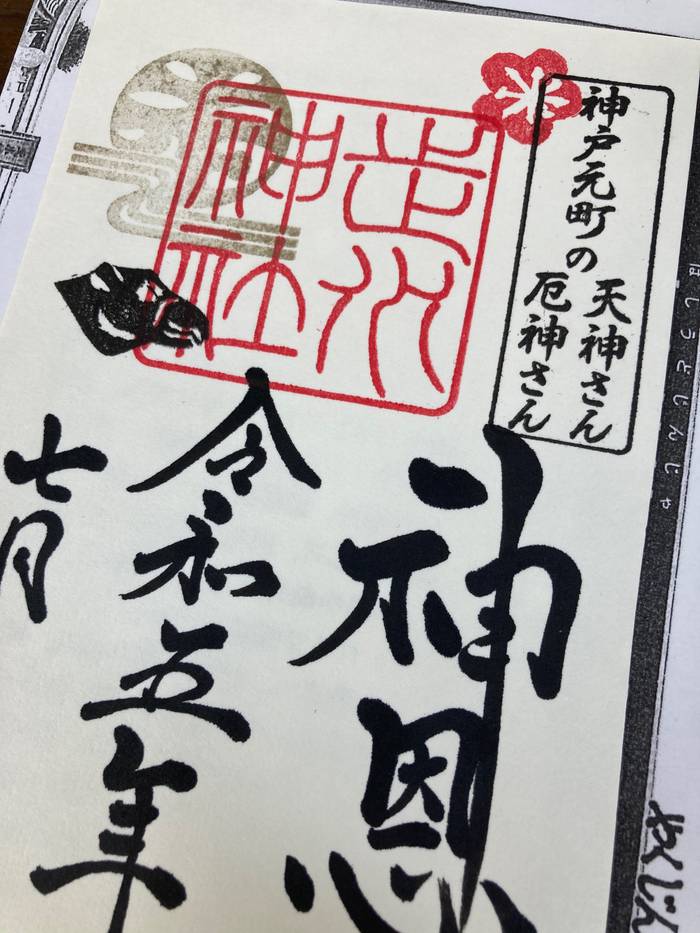 神戸元町の
天神さん
厄神さん
走水
神社
神恩
令和五年
七月
はしうどじんじゃ
やくじん